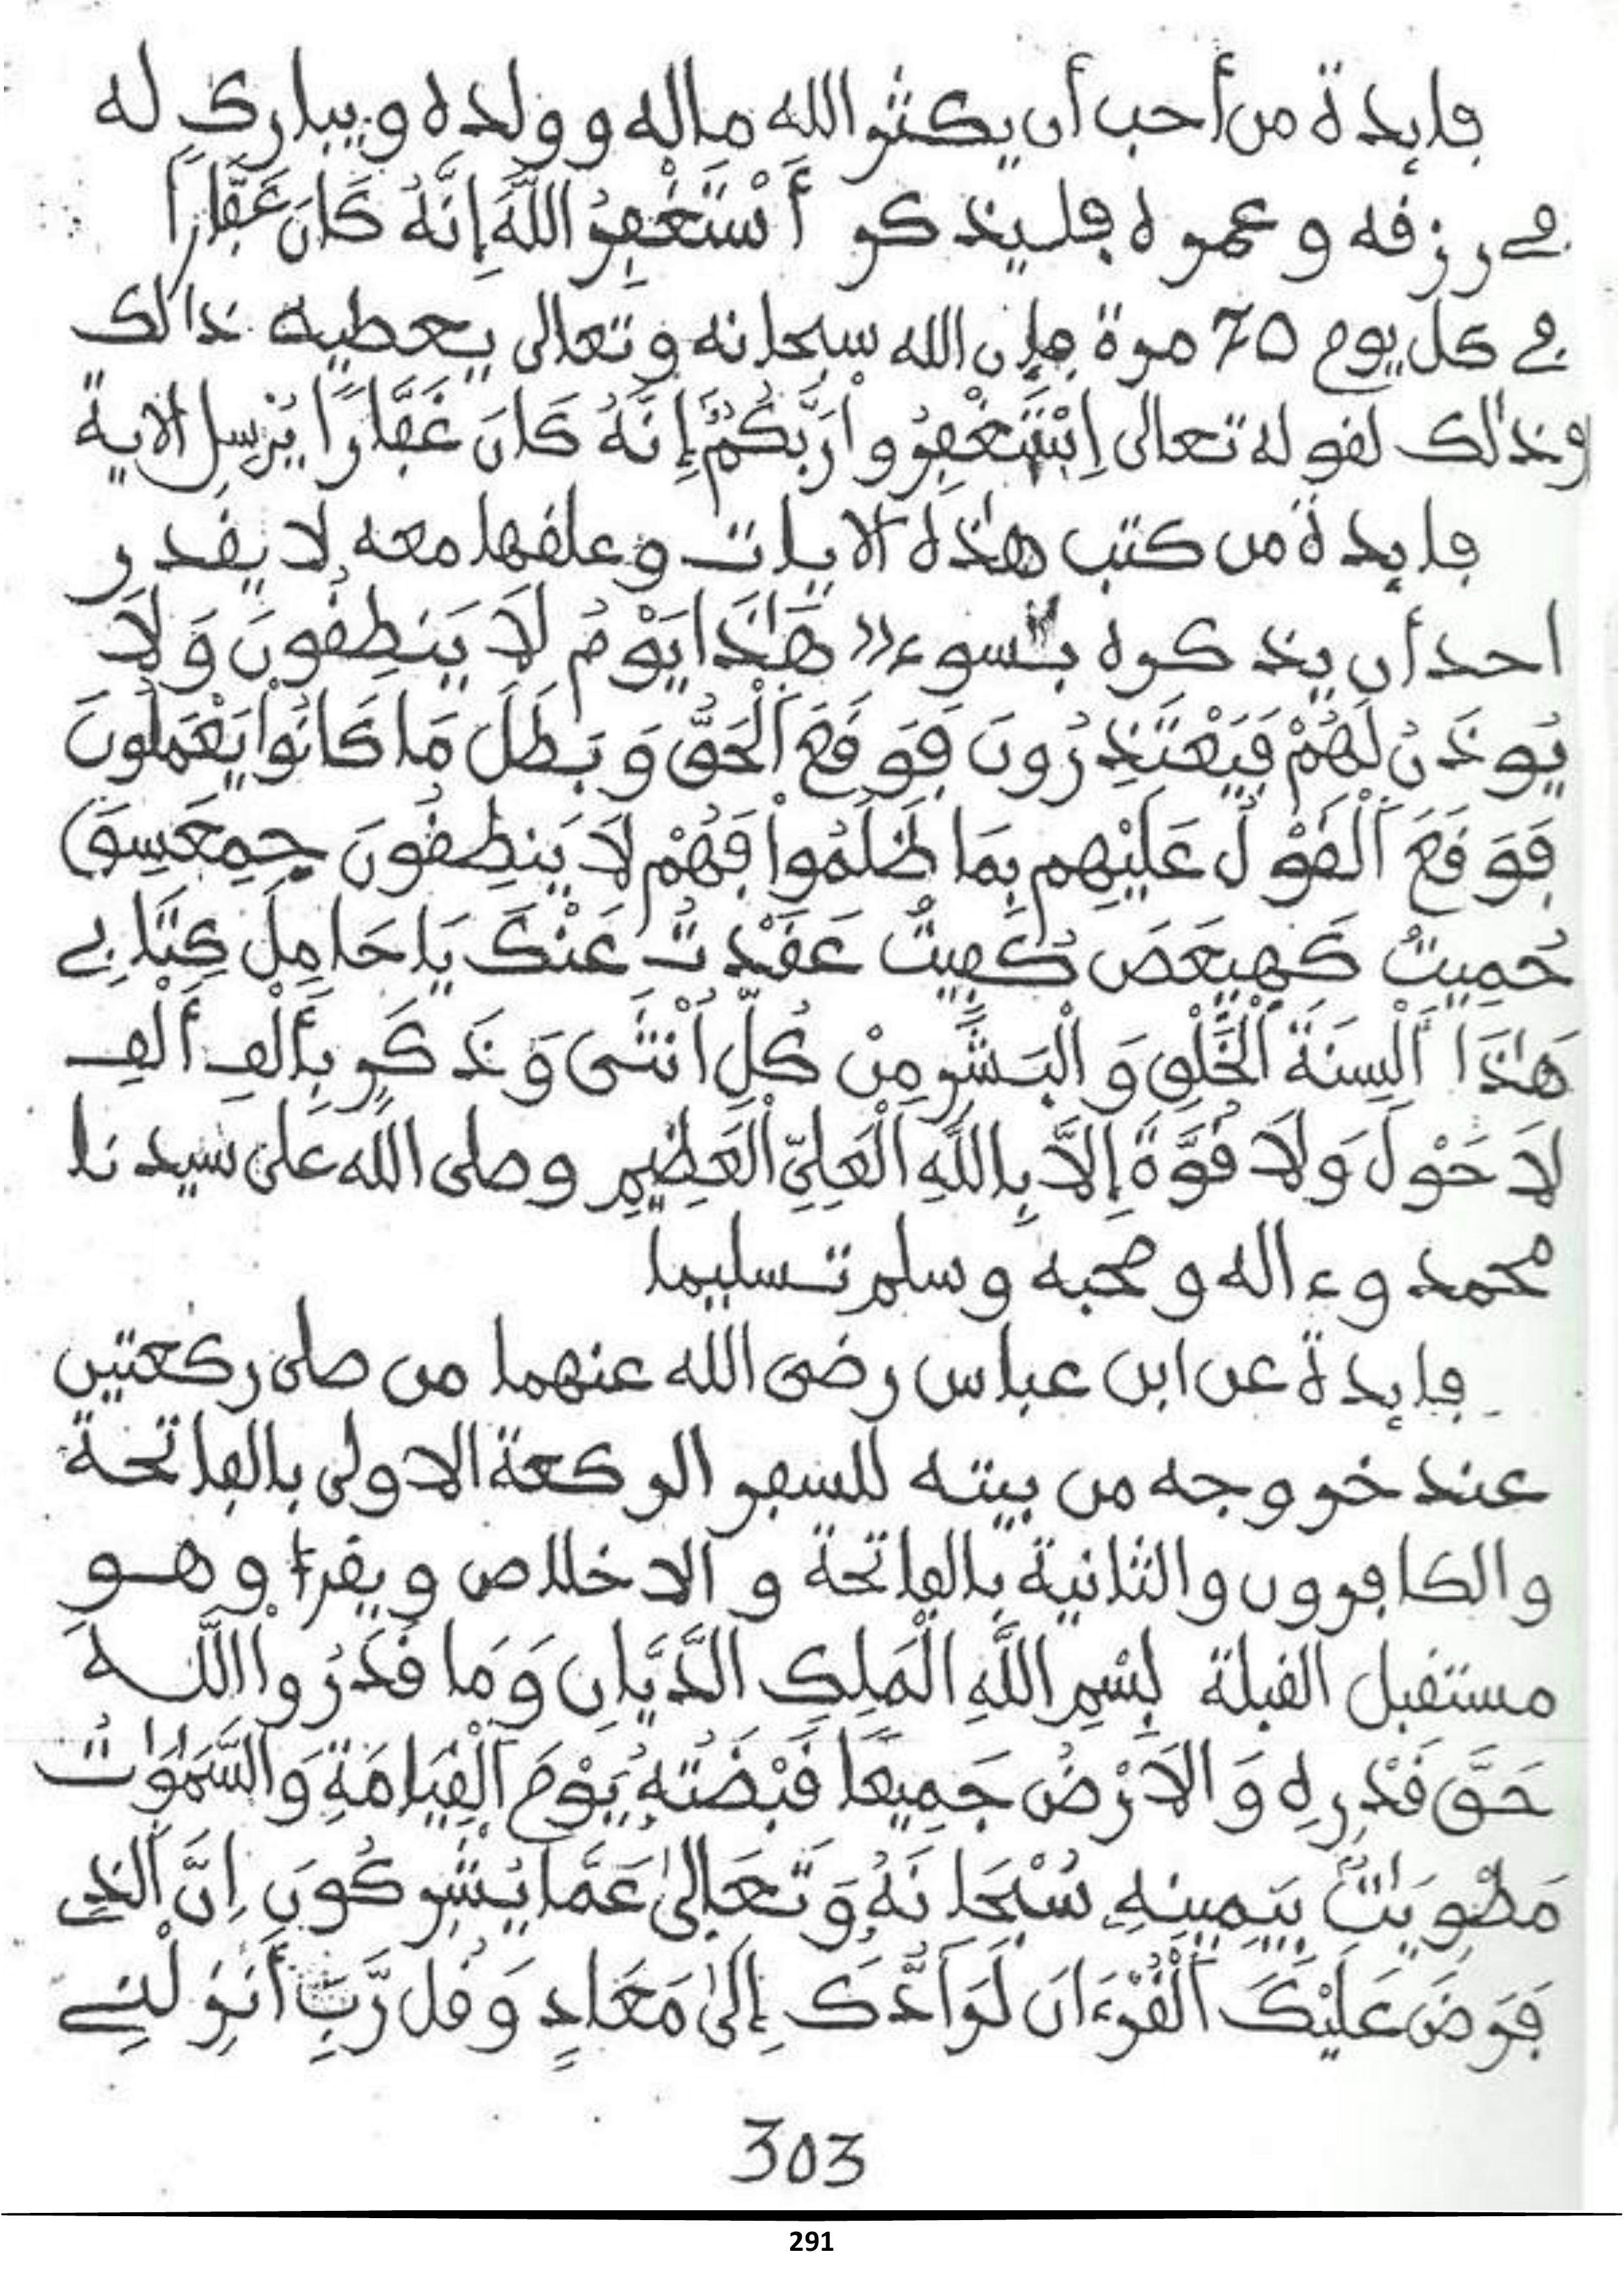 فايدة من أحب أن يكثر الله ماله وولده ويبارك له
في رزقه وعمره فليذكر أَسْتَغْفِرُ اللَّهَ إِنَّهُ كَانَ غَفَّارًا
في كل يوم 70 مرة فإن الله سبحانه وتعالى يعطيه ذالك
وذالك لقوله تعالى اِسْتَغْفِرُوا رَبَّكُمْ إِنَّهُ كَانَ غَفَّارًا يُرْسِلِ الاية
فايدة من كتب هذه الايات وعلقها معه لا يقدر
احد أن يذكره بسوء (( هَٰذَا يَوْمُ لَا يَنطِقُونَ وَلَا
يُوذَنُ لَهُمْ فَيَعْتَذِرُونَ فَوَقَعَ اَلْحَقُّ وَبَطَلَ مَا كَانُوا يَعْمَلُونَ
فَوَقَعَ اَلْقَوْلُ عَلَيْهِم بِمَا ظَلَمُوا فَهُمْ لَا يَنطِقُونَ حِمِعَسِقَ
حُمِيتُ كَهِيعَصَ كُفِيتُ عَقَدْتُ عَنْكَ يَا حَامِلَ كِتَابِي
هَٰذَا أَلْسِنَةَ اَلْخَلْقِ وَالْبَشَرِ مِنْ كُلِّ أُنْثَىٰ وَذَكَرٍ بِأَلْفِ أَلْفِ
لَا حَوْلَ وَلَا قُوَّةَ إِلَّا بِاللَّهِ اَلْعَلِيِّ اَلْعَظِيمِ وصلى الله على سيدنا
محمد وءاله وصحبه وسلم تسليما
فايدة عن ابن عباس رضى الله عنهما من صلى ركعتين
عند خروجه من بيته للسفر الركعة الاولى بالفاتحة
والكافرون والثانية بالفاتحة والاخلاص ويقرأ وهو
مستقبل القبلة بِسْمِ اللَّهِ الْمَلِكِ الدَّيَّانِ وَمَا قَدَرُوا اللَّهَ
حَقَّ قَدْرِهِ وَالَارْضُ جَمِيعًا قَبْضَتُهُ يَوْمَ اَلْقِيَامَةِ وَالسَّمَٰوَٰتُ
مَطْوِيَّٰتٌ بِيَمِينِهِ سُبْحَانَهُ وَتَعَالَىٰ عَمَّا يُشْرِكُونَ إِنَّ اَلذِي
فَرَضَ عَلَيْكَ اَلْقُرْءَانَ لَرَآدُّكَ إِلَىٰ مَعَادٍ وَقُل رَّبِّ أَنزِلْنِي
303
291